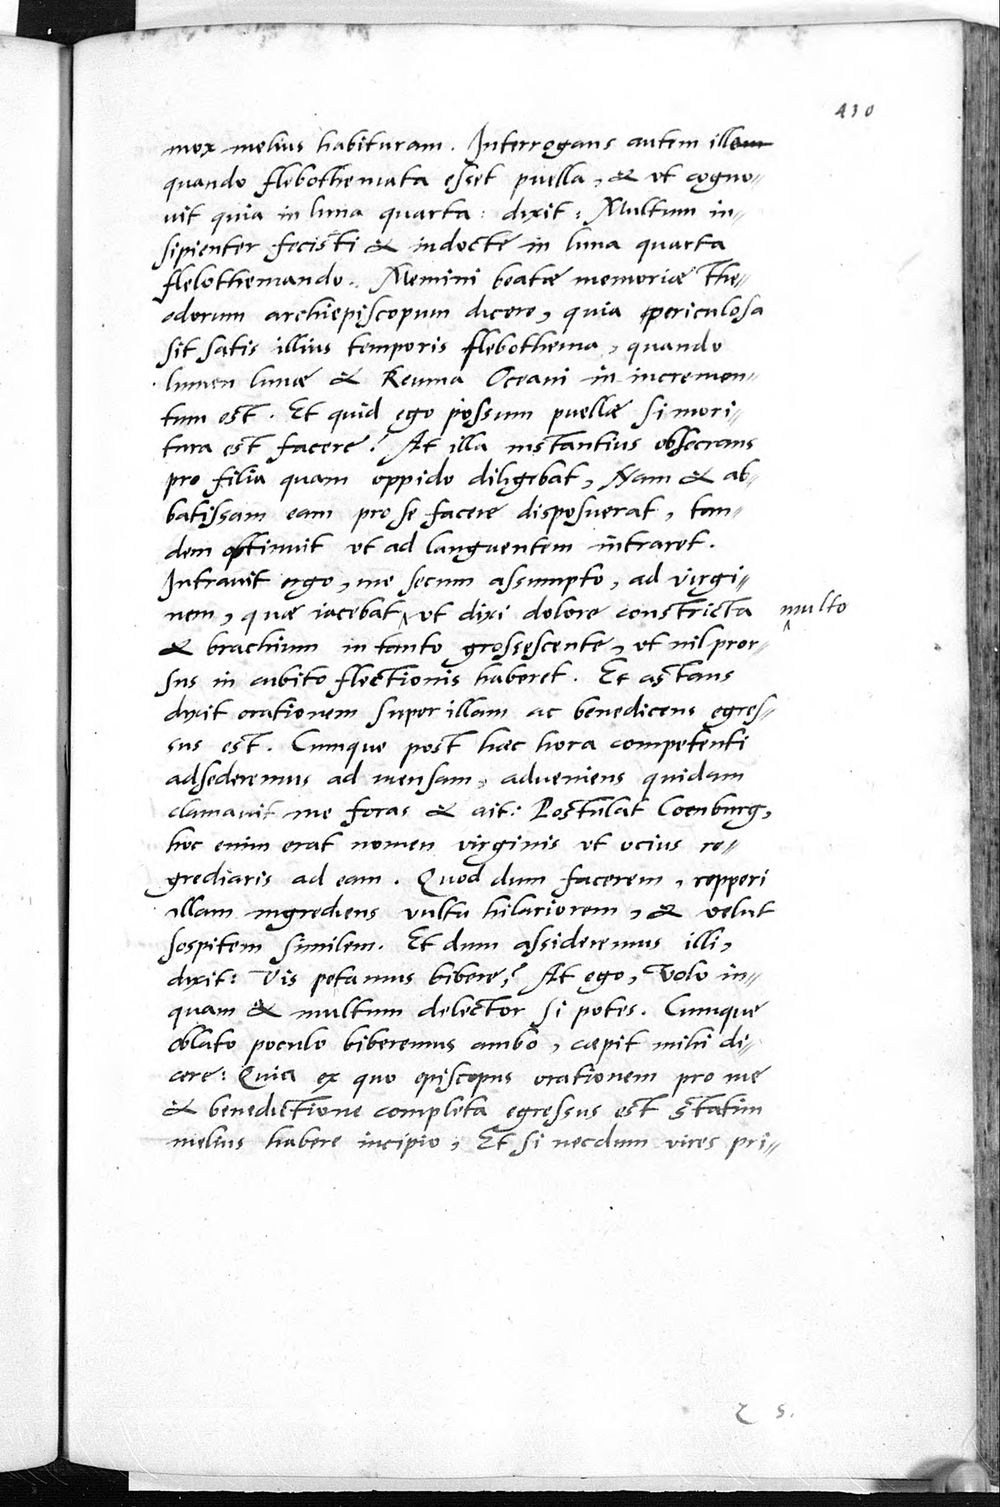 430
mox melius habituram. Interrogans autem illem
quando flebothemata esset puella, & ut cogno//
uit quia in luna quarta: dixit: Multum in//
sipienter fecisti & indocte in luna quarta
flebothemando. Memini beatæ memoriæ The//
odorum archiepiscopum dicere, quia periculosa
sit satis illius temporis flebothema, quando
lumen lunæ & Reuma Oceani in incremen//
tum est. Et quid ego possum puellæ si mori//
tura est facere? At illa instantius obsecrans
pro filia quam oppido diligebat, Nam & ab//
batissam eam pro se facere disposuerat, tan//
dem optinuit ut ad languentem intraret.
Intrauit ergo, me secum assumpto, ad virgi//
nem, quæ iacebat ‸ ut dixi dolore constricta ‸ multo
& brachium in tanto grossescente, ut nil pror//
sus in cubito flectionis haberet. Et astans
dixit orationem super illam ac benedicens egres//
sus est. Cumque post hæc hora competenti
adsederemus ad mensam, adueniens quidam
clamauit me foras & ait: Postulat Coenburg,
hoc enim erat nomen virginis ut ocius re//
grediaris ad eam. Quod dum facerem, repperi
illam ingrediens vultu hilariorem, & velut
sospitem similem. Et dum assideremus illi,
dixit: Vis petamus bibere? At ego, Volo in//
quam & multum delector si potes. Cumque
oblato poculo biberemus ambo, cœpit mihi di//
cere: Quia ex quo episcopus orationem pro me
& benedictione completa egressus est statim
melius habere incipio, Et si necdum vires pri//
z 5.